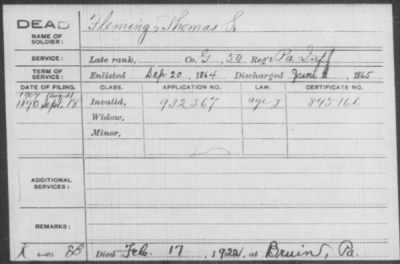 DEAD
NAME OF SOLDIER:
Fleming, Thomas S.
SERVICE:
Late rank, Co. G, 59 Reg't Pa. Inf
TERM OF SERVICE:
Enlisted Sep 20, 1864 Discharged June 2, 1865
DATE OF FILING. CLASS. APPLICATION NO. LAW. CERTIFICATE NO.
1890 Sept. 18 Invalid, 932367
Widow,
Minor,
ADDITIONAL SERVICES:
REMARKS:
Died Feb. 17, 1922, at Bruin, Pa.